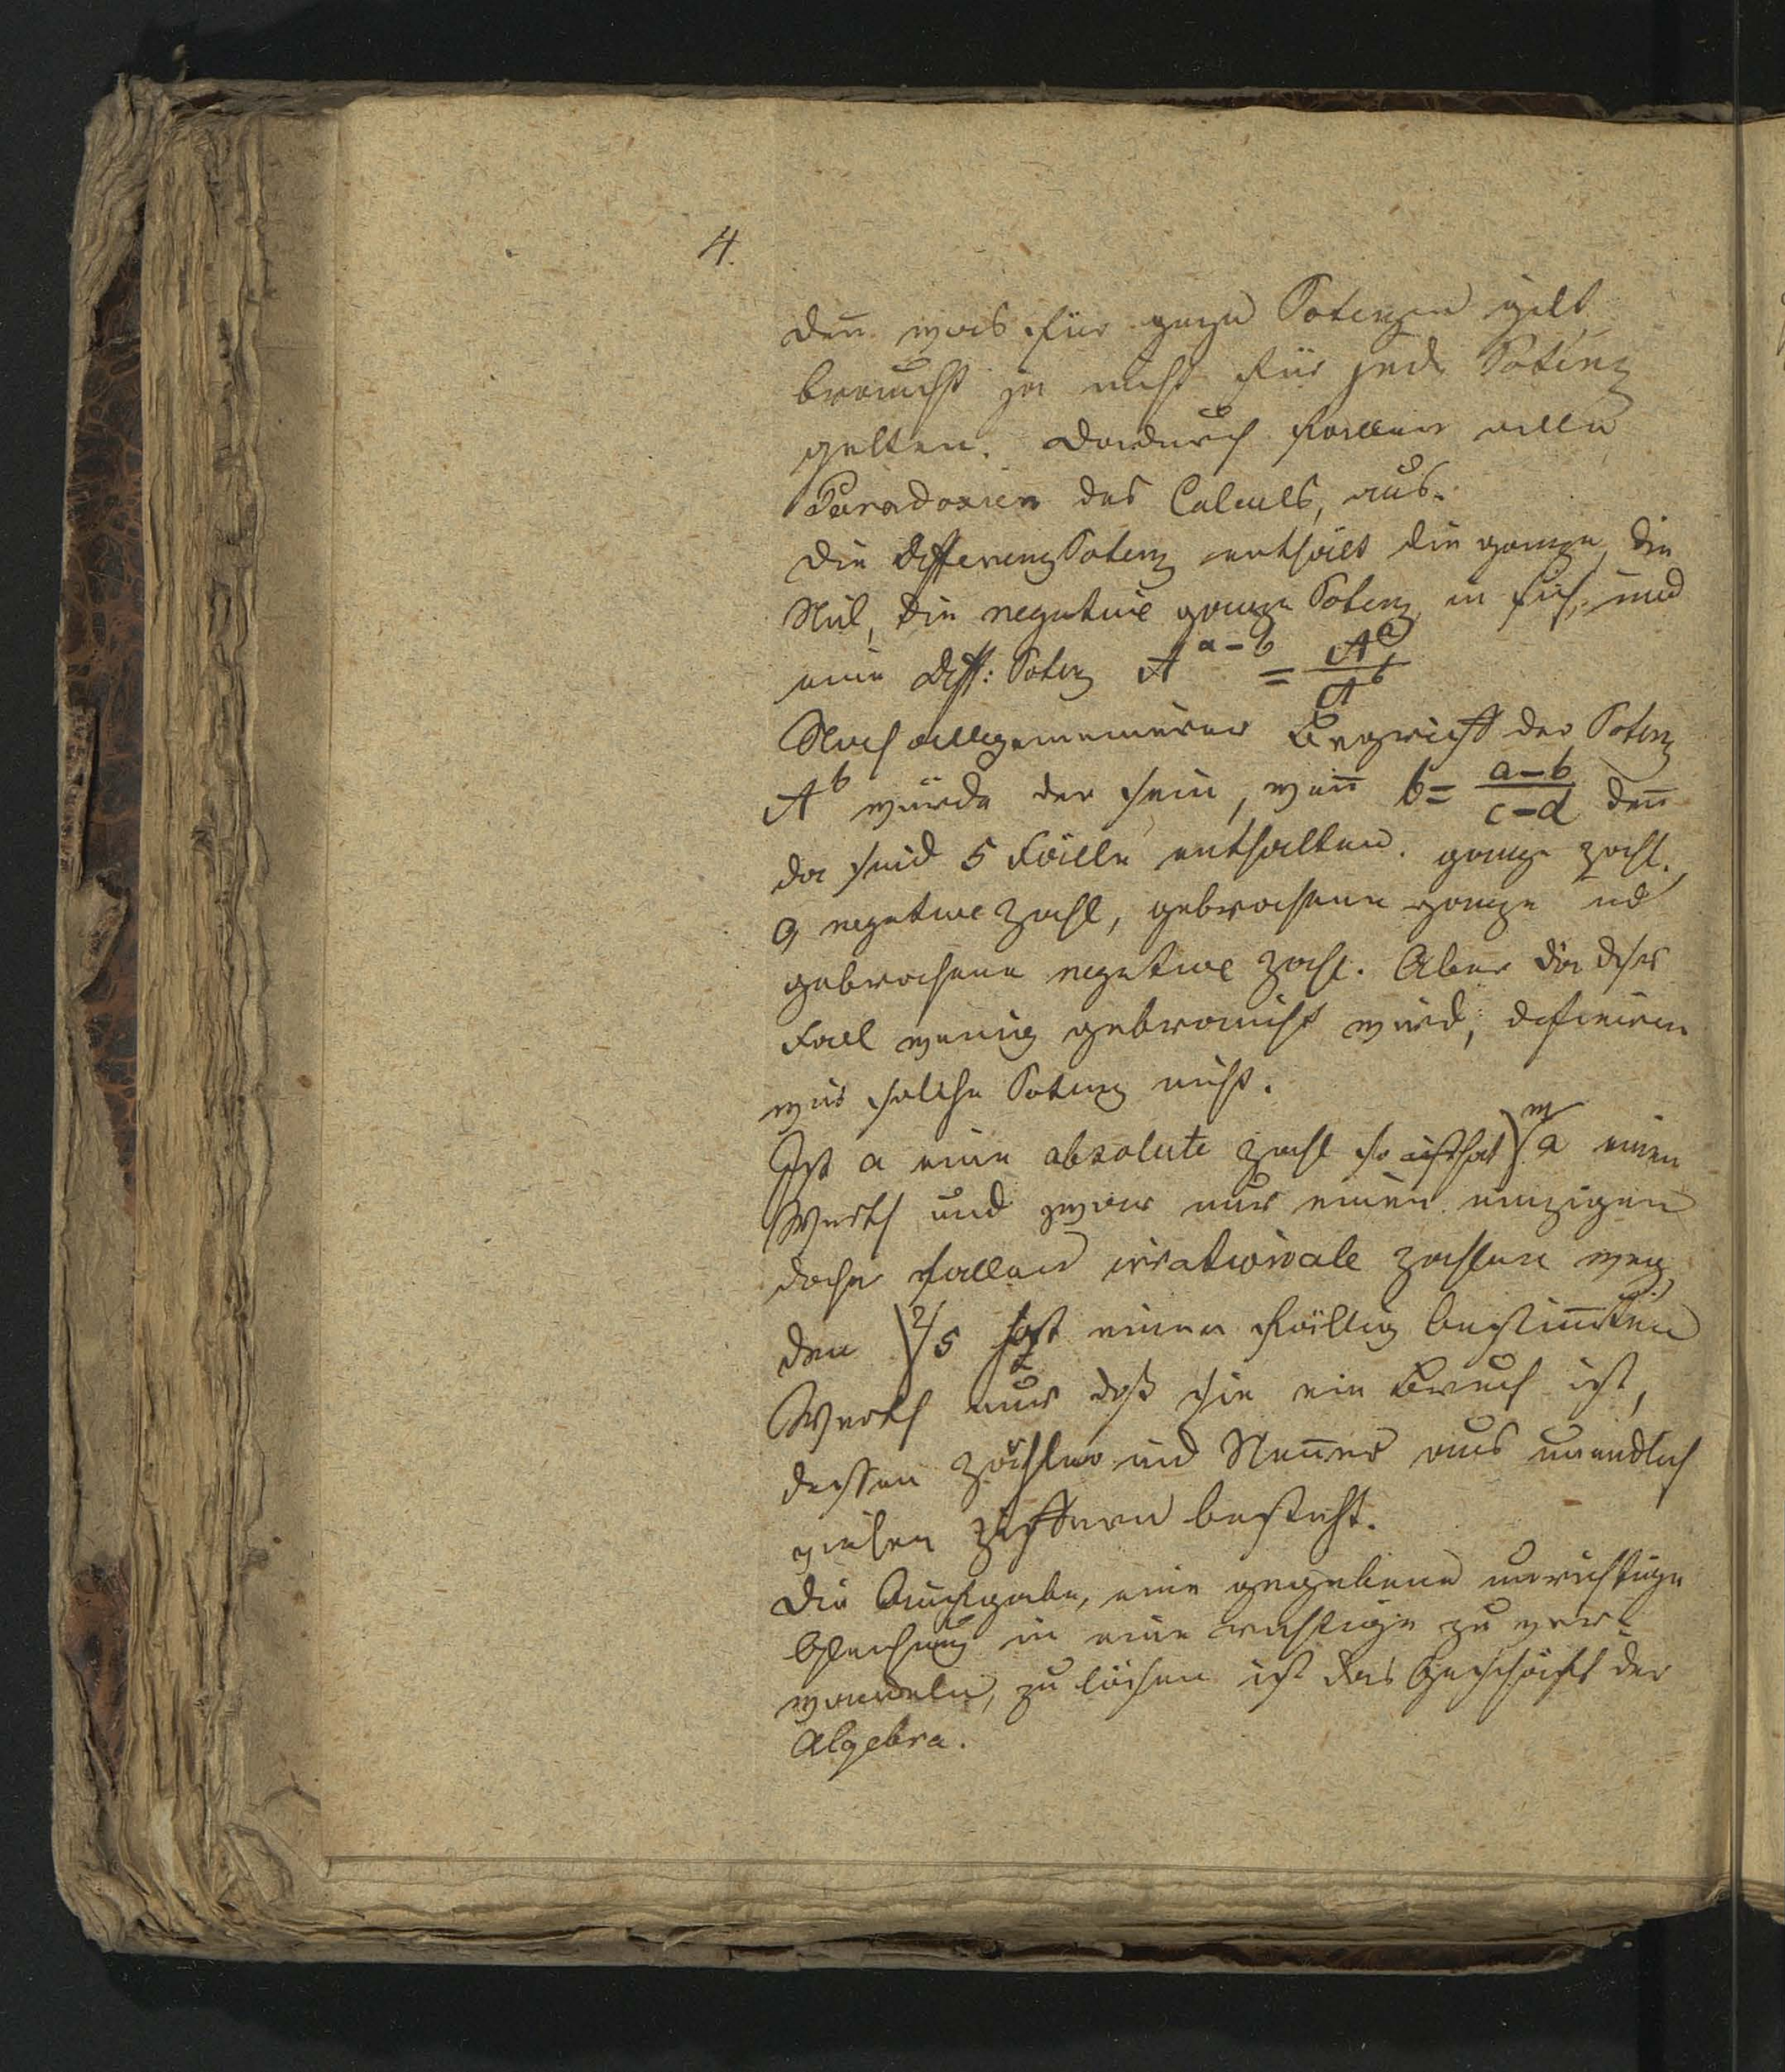 4.
den̄ was für ganze Potenzen gilt
braucht ja nicht für jede Potenz
gelten. Dadurch fallen alle
Paradoxien des Calculs, aus.
Die DifferenzPotenz enthält die ganze, die
Nul, die negative ganze Potenz in sich, und
eine Diff: Potenz A^{a-b} = A^a/A^b
Noch allgemeinerer Begriff der Potenz
A^b würde der sein, wen̄ b = (a-b)/(c-d) den̄
da sind 5 Fälle enthalten. ganze Zahl,
0, negative Zahl, gebrochene ganze ud
gebrochene negative Zahl. Aber da dieser
Fall wenig gebraucht wird, definiren
wir solche Potenz nicht.
Ist a eine absolute Zahl so ist hat √^m a einen
Werth und zwar nur einen einzigen
daher fallen irrationale Zahlen weg,
den √^2 5 hat einen völlig bestim̄ten
Werth nur daß sie ein Bruch ist,
dessen Zähler und Nen̄er aus unendlich
vielen Ziffern besteht.
Die Aufgabe, eine gegebene unrichtige
Gleichung in eine richtige zu ver-
wandeln, zu lösen ist das Geschäft der
Algebra.